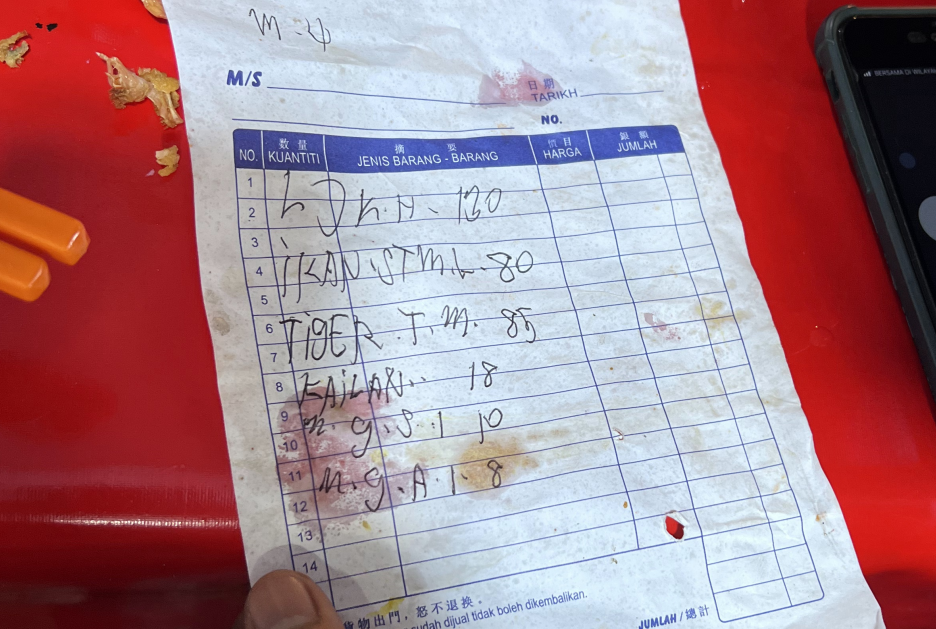 M.4
M/S
日期
TARIKH
NO.
NO. 数量 KUANTITI 摘要 JENIS BARANG - BARANG 價目 HARGA 銀額 JUMLAH
1
2 K.A. 130
3
4 IKAN.STM.L. 80
5
6 TIGER.T.M. 85
7
8 KAILAN.. 18
9 n.g.S.1 10
10
11 M.g.A.1. 8
12
13
14
貨物出門，恕不退换。
udah dijual tidak boleh dikembalikan.
JUMLAH / 總計
BERSAMA DI WILAY